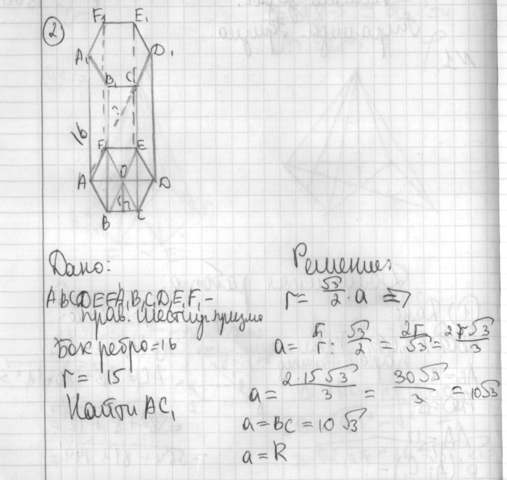 2
F₁ E₁
A₁ D₁
B₁ C₁
?
16
F E
A O D
B C
Дано:
ABCDEFA₁B₁C₁D₁E₁F₁ –
прав. шестиуг. призма
Бок ребро = 16
r = 15
Найти AC₁
Решение:
r = √3/2 · a ⇒
a = r : √3/2 = 2r/√3 = 2r√3/3
a = 2·15√3/3 = 30√3/3 = 10√3
a = BC = 10√3
a = R